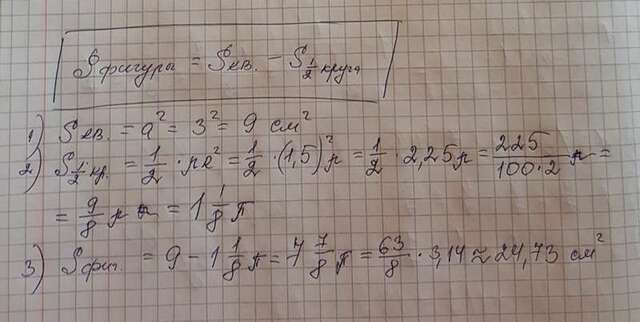 S фигуры = S кв. - S 1/2 круга
1) S кв. = a² = 3² = 9 см²
2) S 1/2 кр. = 1/2 · πR² = 1/2 · (1,5)² π = 1/2 · 2,25π = 225/(100·2) π =
= 9/8 π = 1 1/8 π
3) S фиг. = 9 - 1 1/8 π = 7 7/8 π = 63/8 · 3,14 ≈ 24,73 см²